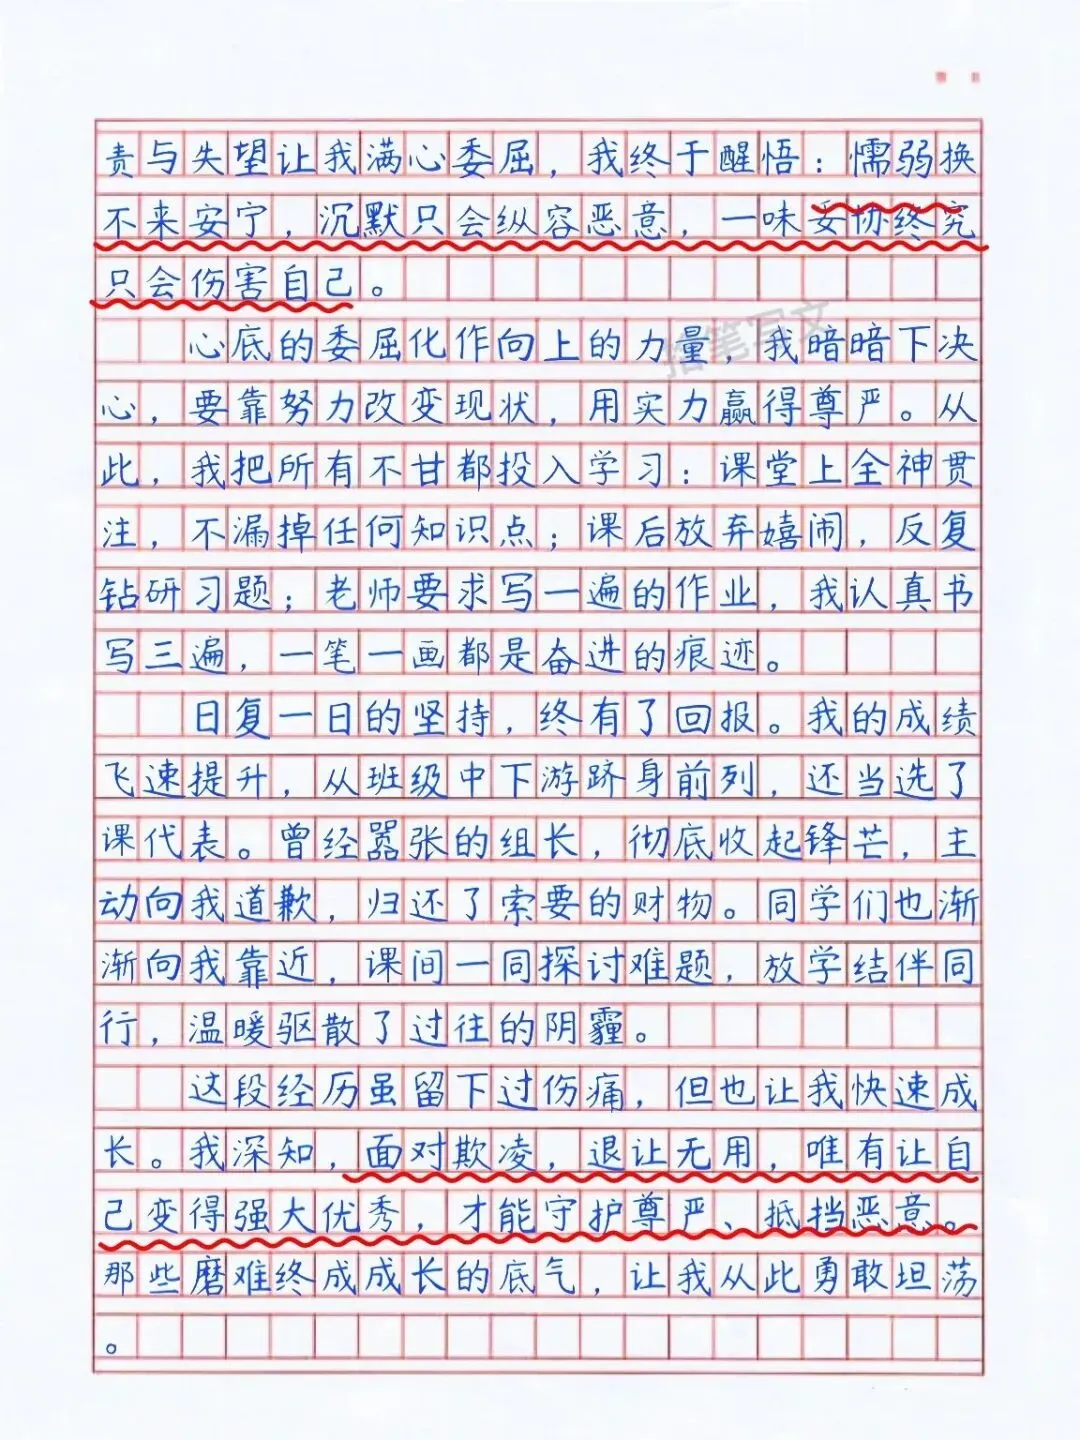 责与失望让我满心委屈，我终于醒悟：懦弱换
不来安宁，沉默只会纵容恶意，一味妥协终究
只会伤害自己。
拾笔写文
心底的委屈化作向上的力量，我暗暗下决
心，要靠努力改变现状，用实力赢得尊严。从
此，我把所有不甘都投入学习：课堂上全神贯
注，不漏掉任何知识点；课后放弃嬉闹，反复
钻研习题；老师要求写一遍的作业，我认真书
写三遍，一笔一画都是奋进的痕迹。
日复一日的坚持，终有了回报。我的成绩
飞速提升，从班级中下游跻身前列，还当选了
课代表。曾经嚣张的组长，彻底收起锋芒，主
动向我道歉，归还了索要的财物。同学们也渐
渐向我靠近，课间一同探讨难题，放学结伴同
行，温暖驱散了过往的阴霾。
这段经历虽留下过伤痛，但也让我快速成
长。我深知，面对欺凌，退让无用，唯有让自
己变得强大优秀，才能守护尊严、抵挡恶意。
那些磨难终成成长的底气，让我从此勇敢坦荡
。